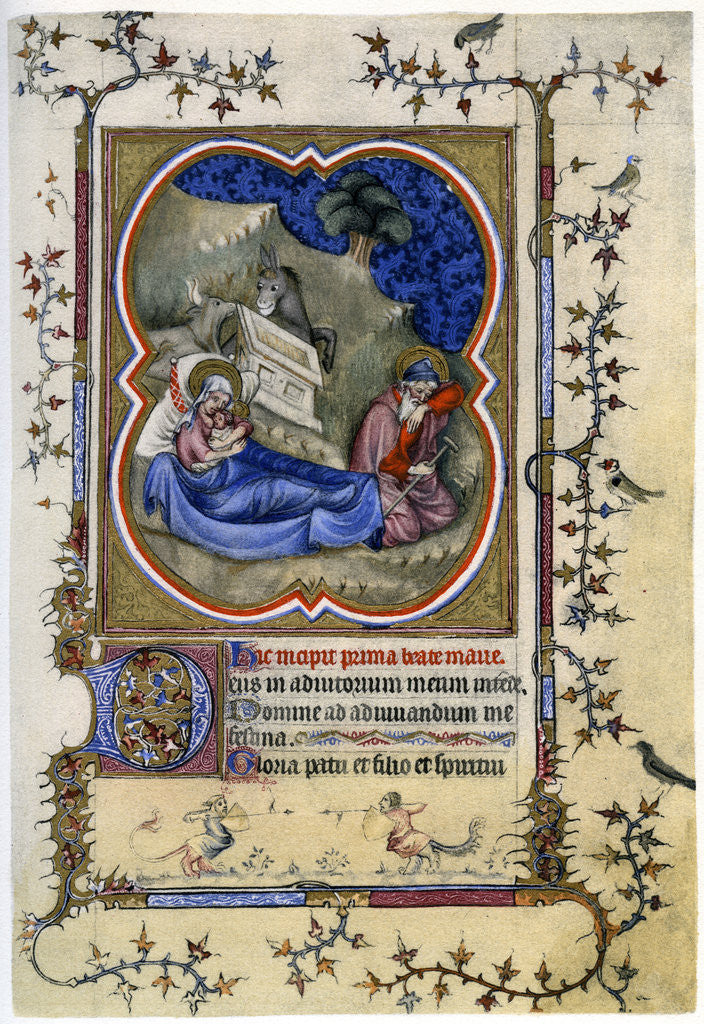 Hic incipit prima beate marie.
Deus in adiutorium meum intende.
Domine ad adiuuandum me
festina.
Gloria patri et filio et spiritui